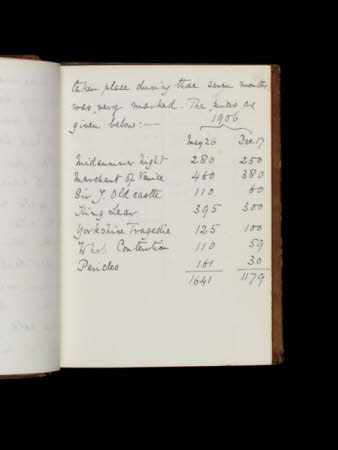 taken place during those seven months
was very marked. The prices are
given below:—
1906
May 26 Dec 17
Midsummer Night 280 250
Merchant of Venice 460 380
Sir J. Oldcastle 110 60
King Lear 395 300
Yorkshire Tragedie 125 100
Whole Contention 110 59
Pericles 161 30
1641 1179